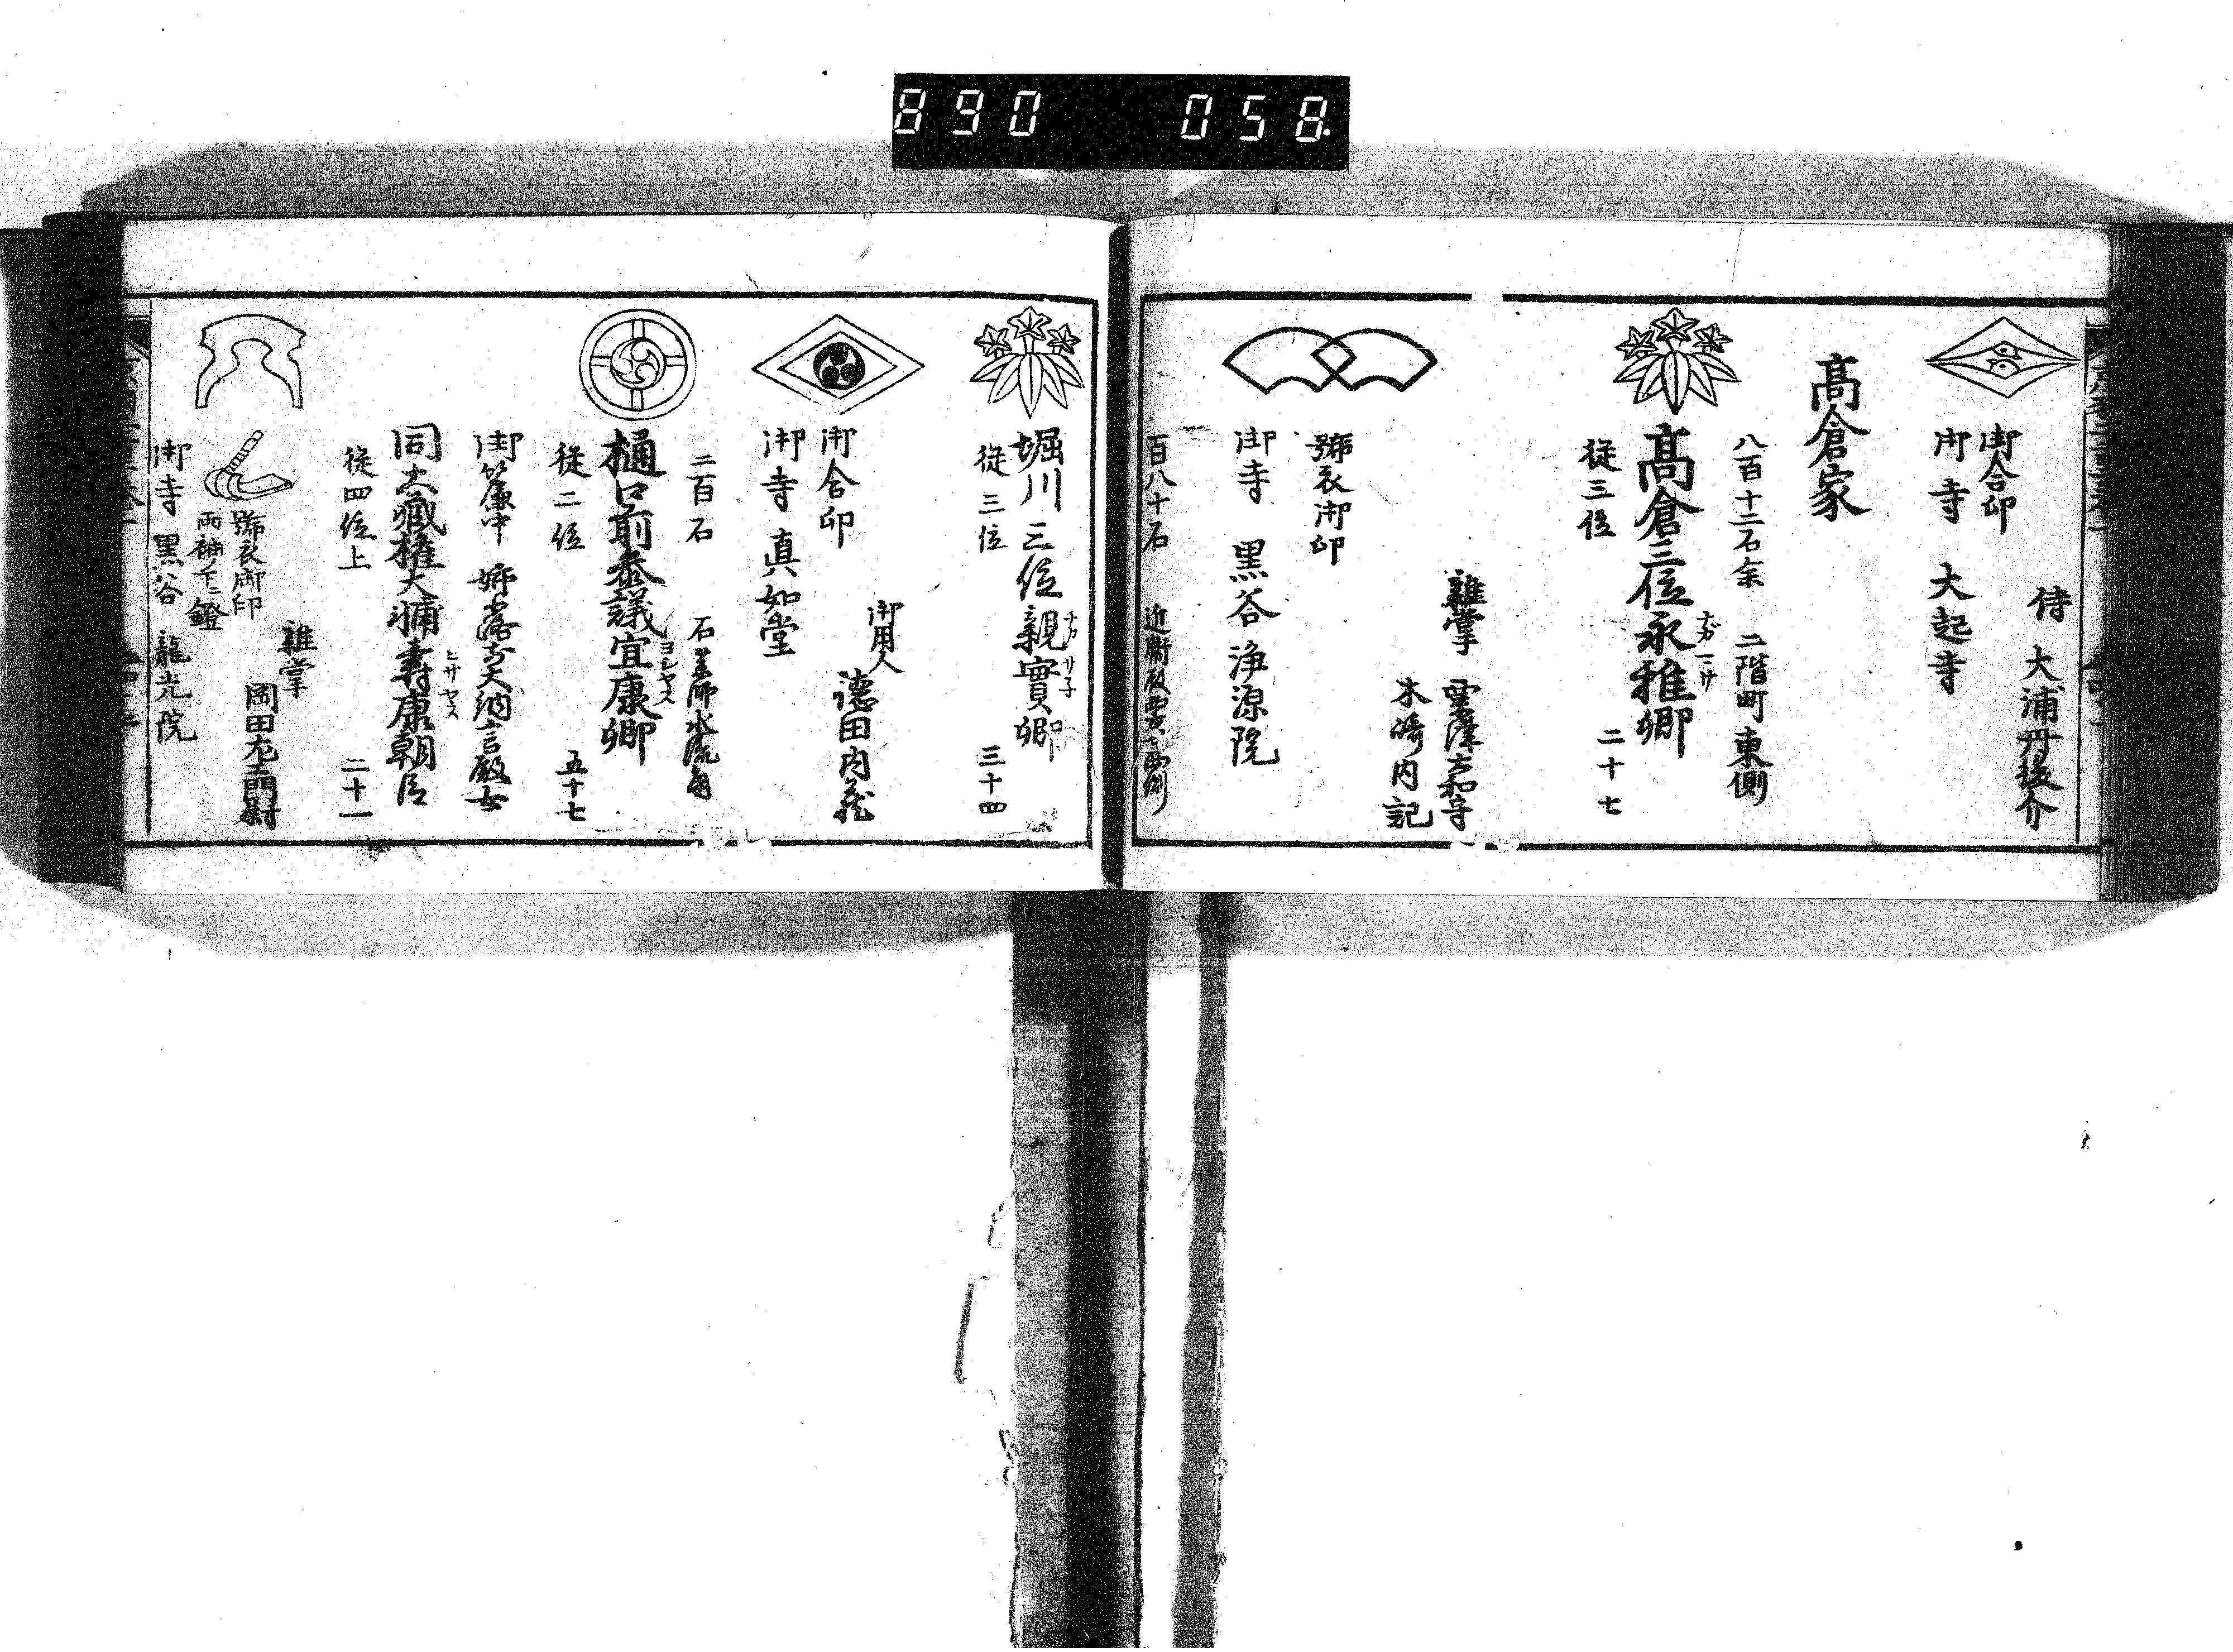 890 058
侍 大浦丹後介
御合印
御寺 大起寺
高倉家
八百十二石余 二階町東側
高倉三位永雅卿
従三位 二十七
雑掌
木崎内記
號衣御印
御寺 黒谷 浄源院
百八十石
堀川三位親實卿
従三位 三十四
御用人
徳田内蔵
御合印
御寺 真如堂
二百石 石薬師
ヨシヤス
樋口前参議宜康卿
従二位 五十七
御簾中 姉小路前大納言殿女
ヒサヤス
同大蔵権大輔壽康朝臣
従四位上 二十一
雑掌
岡田左衛門尉
號衣御印
両袖ノ下ニ鐙
御寺 黒谷 龍光院